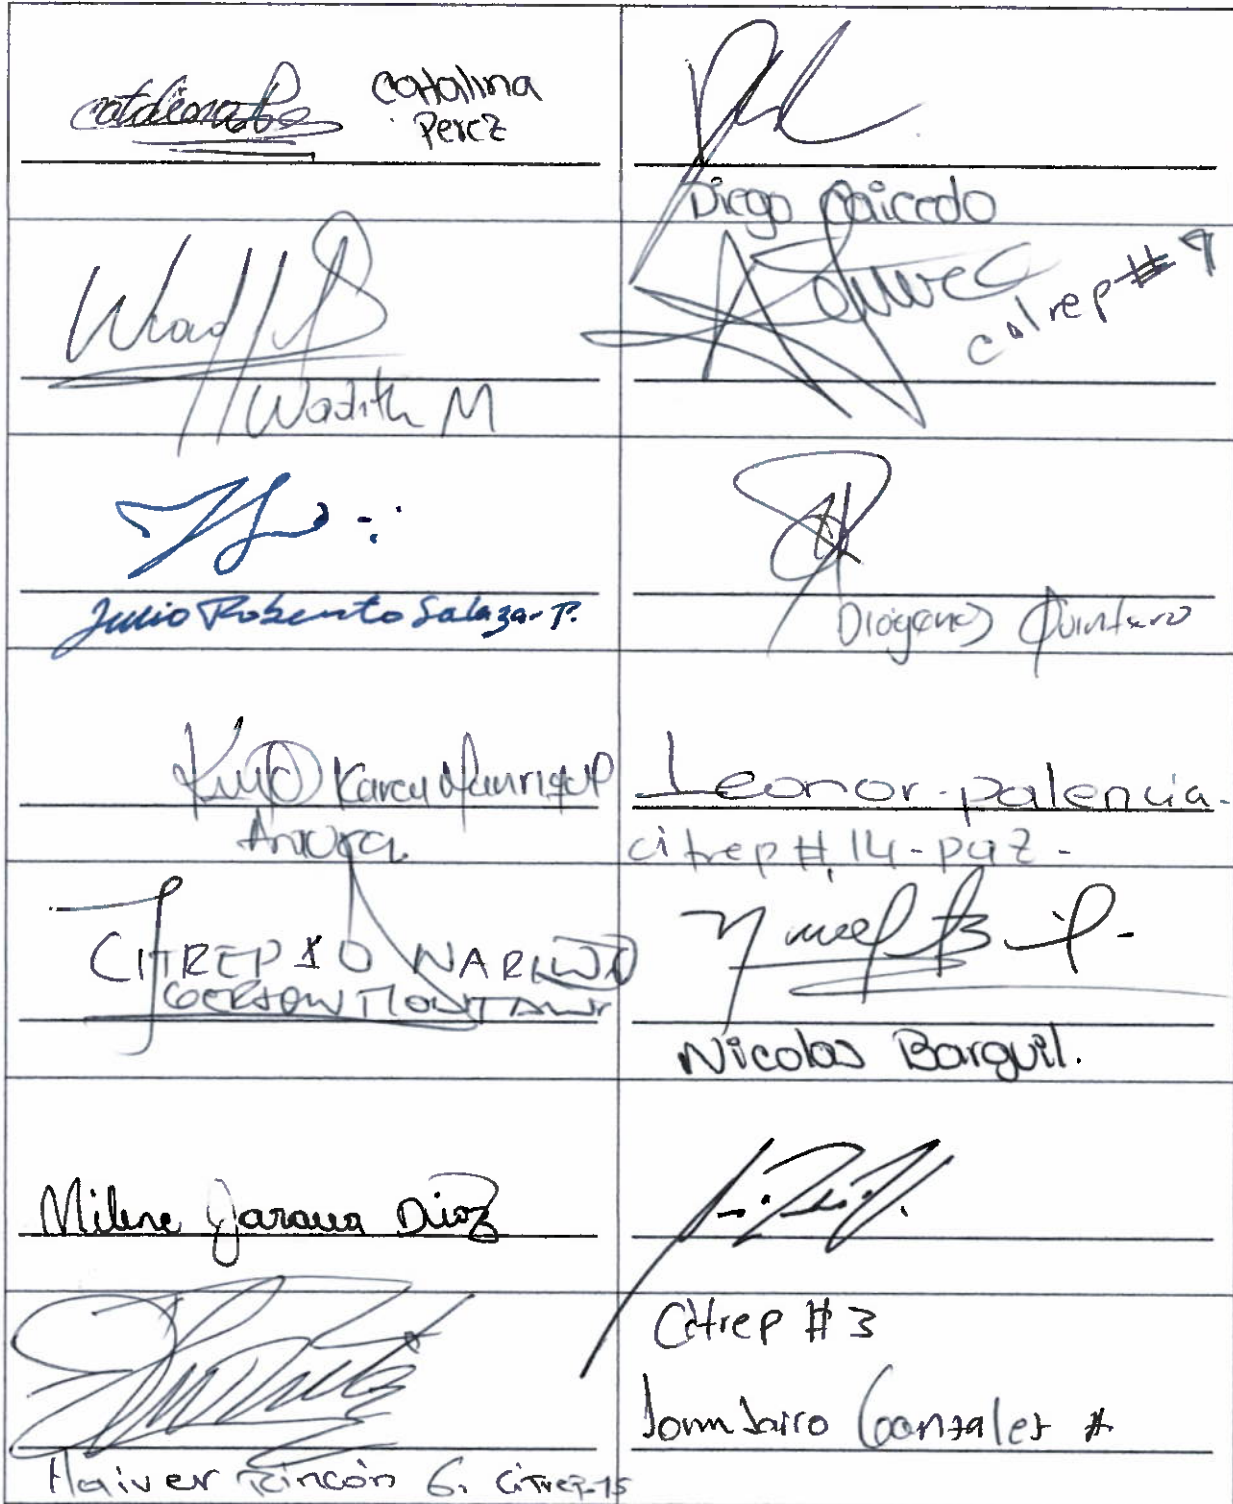 Catalina
Perez
Diego Caicedo
Wadith M
citrep # 9
Julio Roberto Salazar P.
Diógenes Quintero
Karen Manrique
Arauca
Leonor-palencia-
citrep # 14-paz-
CITREP 10 NARIÑO
GERSON MONTAÑO
Nicolas Barguil.
Milene Jarava Diaz
Citrep # 3
Jhon Jairo Gonzalez A
Haiver Rincón G. Citrep-15